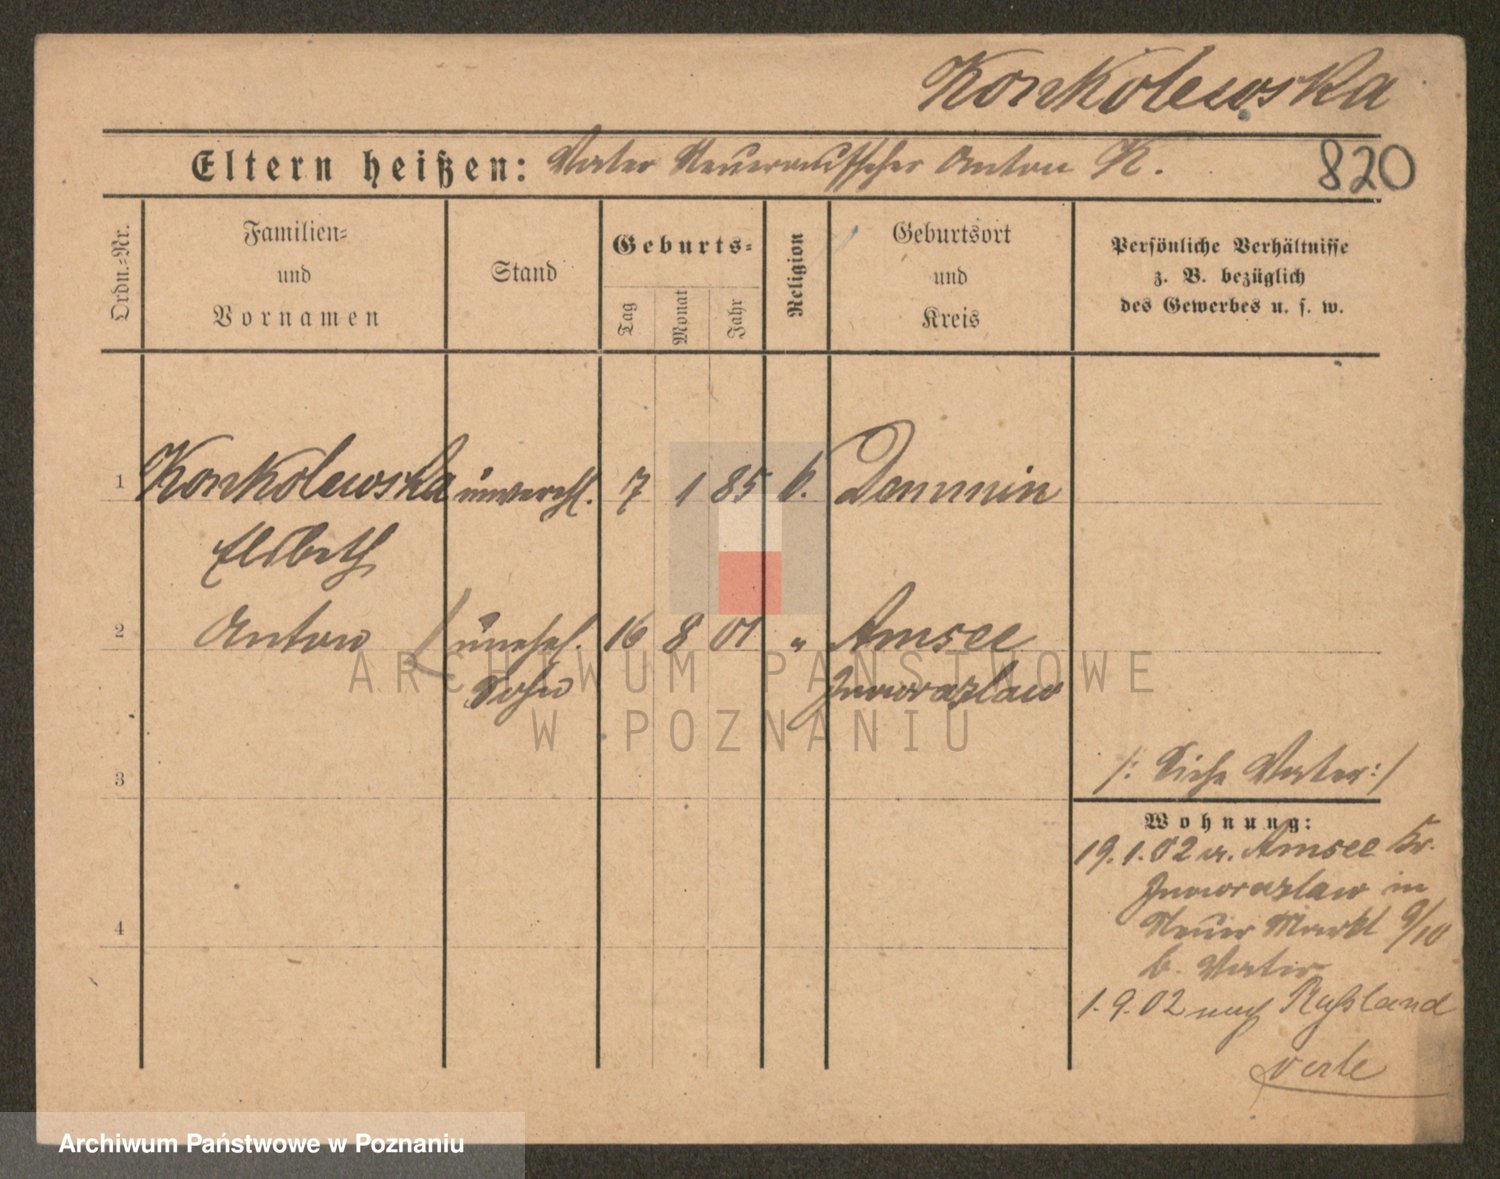 Konkolewska
Eltern heißen: Vater Steueraufseher Anton K. 820
Ordn.-Nr.
Familien-
und
Vornamen
Stand
Geburts-
Tag
Monat
Jahr
Religion
Geburtsort
und
Kreis
Persönliche Verhältnisse
z. B. bezüglich
des Gewerbes u. s. w.
1 Konkolewska unverehl. 7 1 85 k. Demmin
Elsbeth
2 Anton unehel. 16 8 01 " Amsee
Sohn Inowrazlaw
ARCHIWUM PAŃSTWOWE
W POZNANIU
3
/: Siehe Vater :/
Wohnung:
19.1.02 v. Amsee Kr.
Inowrazlaw in
4
Neuer Markt 9/10
b. Vater
1.9.02 nach Russland
Archiwum Państwowe w Poznaniu